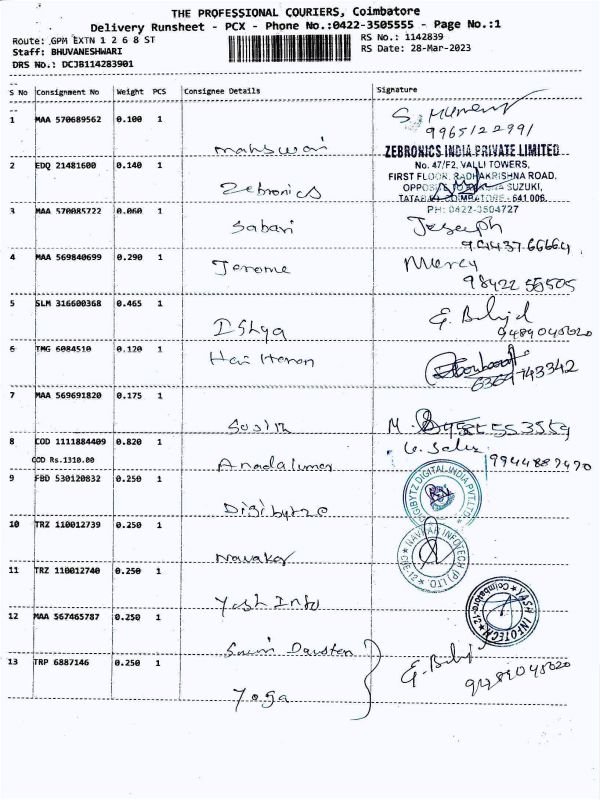 THE PROFESSIONAL COURIERS, Coimbatore
Delivery Runsheet - PCX - Phone No.:0422-3505555 - Page No.:1
Route: GPM EXTN 1 2 6 8 ST
RS No.: 1142839
Staff: BHUVANESHWARI
RS Date: 28-Mar-2023
DRS No.: DCJB114283901
S No Consignment No Weight PCS Consignee Details Signature
1 MAA 570689562 0.100 1
9965122991
2 EDQ 21481600 0.140 1 Zebronics
ZEBRONICS INDIA PRIVATE LIMITED
No. 47/F2, VALLI TOWERS,
FIRST FLOOR, RADHAKRISHNA ROAD,
SUZUKI,
TATABAD, COIMBATORE - 641 006.
PH: 0422-3504727
3 MAA 570085722 0.060 1 Sabari
Joseph
4 MAA 569840699 0.290 1 Jerome
Mercy
98422 55505
5 SLM 316600368 0.465 1
9489045020
6 TMG 6084510 0.120 1
6369743342
7 MAA 569691820 0.175 1
8 COD 1111884409 0.820 1
COD Rs.1310.00
9 FBD 530120832 0.250 1
DIGIBYTZ DIGITAL INDIA PVT.LTD.
10 TRZ 110012739 0.250 1
NAVKAR INFOTECH (P) LTD.
CBE-12
11 TRZ 110012740 0.250 1 Yash Info
YASH INFOTECH
Coimbatore-12
12 MAA 567465787 0.250 1
13 TRP 6887146 0.250 1 Yoga